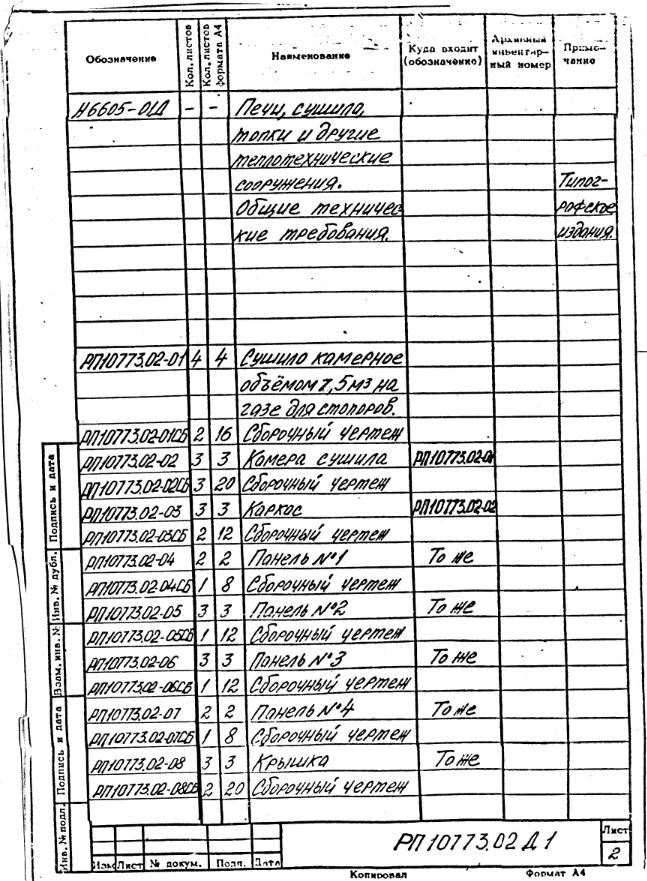 Обозначение Кол. листов Кол. листов формата А4 Наименование Куда входит (обозначение) Архивный инвентарный номер Примечание
Н6605-01Д - - Печи, сушила,
топки и другие
теплотехнические
сооружения. Типог-
Общие техничес- рафское
кие требования. издания.
РП10773.02-01 4 4 Сушило камерное
объёмом 7,5м3 на
газе для стопоров.
РП10773.02-01СБ 2 16 Сборочный чертеж
РП10773.02-02 3 3 Камера сушила РП10773.02-01
РП10773.02-02СБ 3 20 Сборочный чертеж
РП10773.02-03 3 3 Каркас РП10773.02-02
РП10773.02-03СБ 2 12 Сборочный чертеж
РП10773.02-04 2 2 Панель №1 То же
РП10773.02-04СБ 1 8 Сборочный чертеж
РП10773.02-05 3 3 Панель №2 То же
РП10773.02-05СБ 1 12 Сборочный чертеж
РП10773.02-06 3 3 Панель №3 То же
РП10773.02-06СБ 1 12 Сборочный чертеж
РП10773.02-07 2 2 Панель №4 То же
РП10773.02-07СБ 1 8 Сборочный чертеж
РП10773.02-08 3 3 Крышка То же
РП10773.02-08СБ 2 20 Сборочный чертеж
Инв. № подл. Подпись и дата Взам. инв. № Инв. № дубл. Подпись и дата
Изм Лист № докум. Подп. Дата
РП10773.02 Д1
Лист
2
Копировал Формат А4